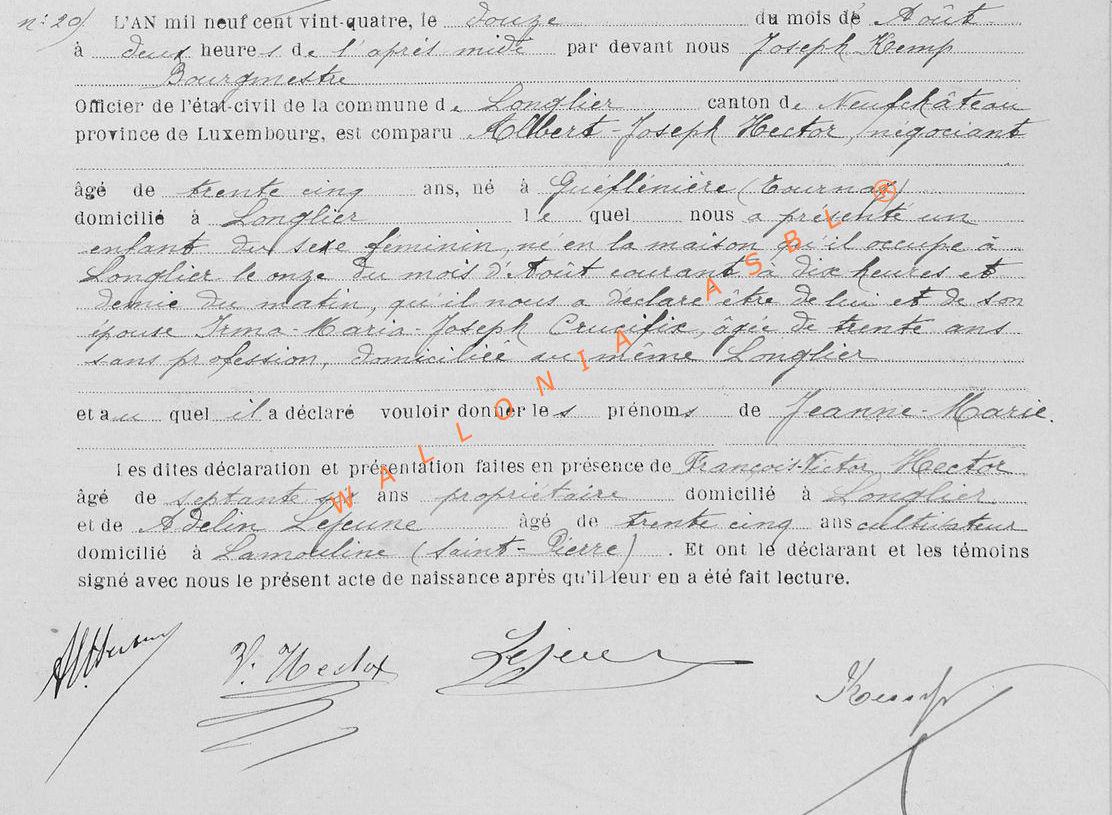 n: 29) L'AN mil neuf cent vint-quatre, le douze du mois de Août
à deux heures de l'après midi par devant nous Joseph Kemp
Bourgmestre
Officier de l'état-civil de la commune de Longlier canton de Neufchâteau
province de Luxembourg, est comparu Albert-Joseph Hector, négociant
âgé de trente cinq ans, né à (Tournay)
domicilié à Longlier lequel nous a présenté un
enfant du sexe feminin, né en la maison qu'il occupe à
Longlier le onze du mois d'Août courant à dix heures et
demie du matin, qu'il nous a déclaré être de lui et de son
épouse Irma-Maria-Joseph Crucifix, âgée de trente ans
sans profession, domiciliée au même Longlier
et au quel il a déclaré vouloir donner les prénoms de Jeanne-Marie.
Les dites déclaration et présentation faites en présence de François-Victor Hector
âgé de septante six ans propriétaire domicilié à Longlier
et de Adelin Lejeune âgé de trente cinq ans cultivateur
domicilié à Lamouline (Saint-Pierre). Et ont le déclarant et les témoins
signé avec nous le présent acte de naissance après qu'il leur en a été fait lecture.
V. Hector Lejeune Kemp
WALLONIA ASBL ®